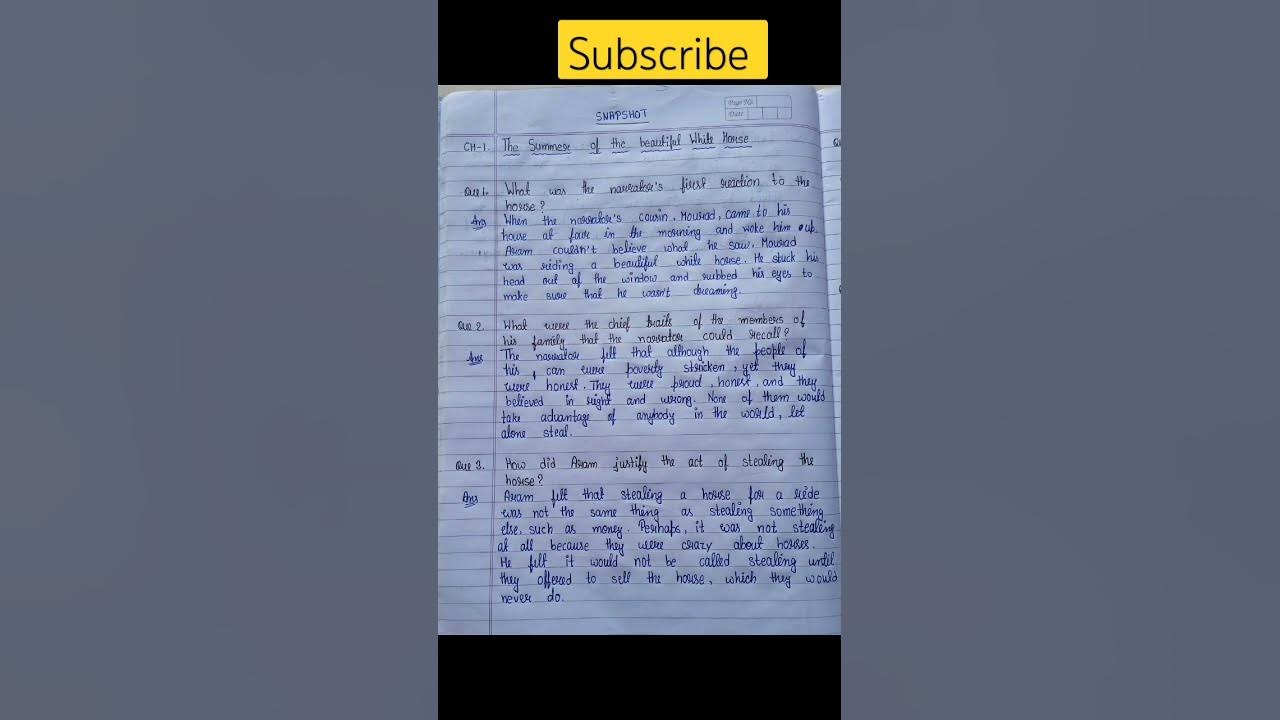 Subscribe
SNAPSHOT
Page No.
Date
CH-1. The Summer of the beautiful White Horse
Que 1. What was the narrator's first reaction to the
horse?
Ans When the narrator's cousin, Mourad, came to his
house at four in the morning and woke him up.
Aram couldn't believe what he saw. Mourad
was riding a beautiful while horse. He stuck his
head out of the window and rubbed his eyes to
make sure that he wasn't dreaming.
Que 2. What were the chief traits of the members of
his family that the narrator could recall?
Ans The narrator felt that although the people of
his, can were poverty stricken, yet they
were honest. They were proud, honest, and they
believed in right and wrong. None of them would
take advantage of anybody in the world, let
alone steal.
Que 3. How did Aram justify the act of stealing the
horse?
Ans Aram felt that stealing a horse for a ride
was not the same thing as stealing something
else, such as money. Perhaps, it was not stealing
at all because they were crazy about horses.
He felt it would not be called stealing until
they offered to sell the horse, which they would
never do.